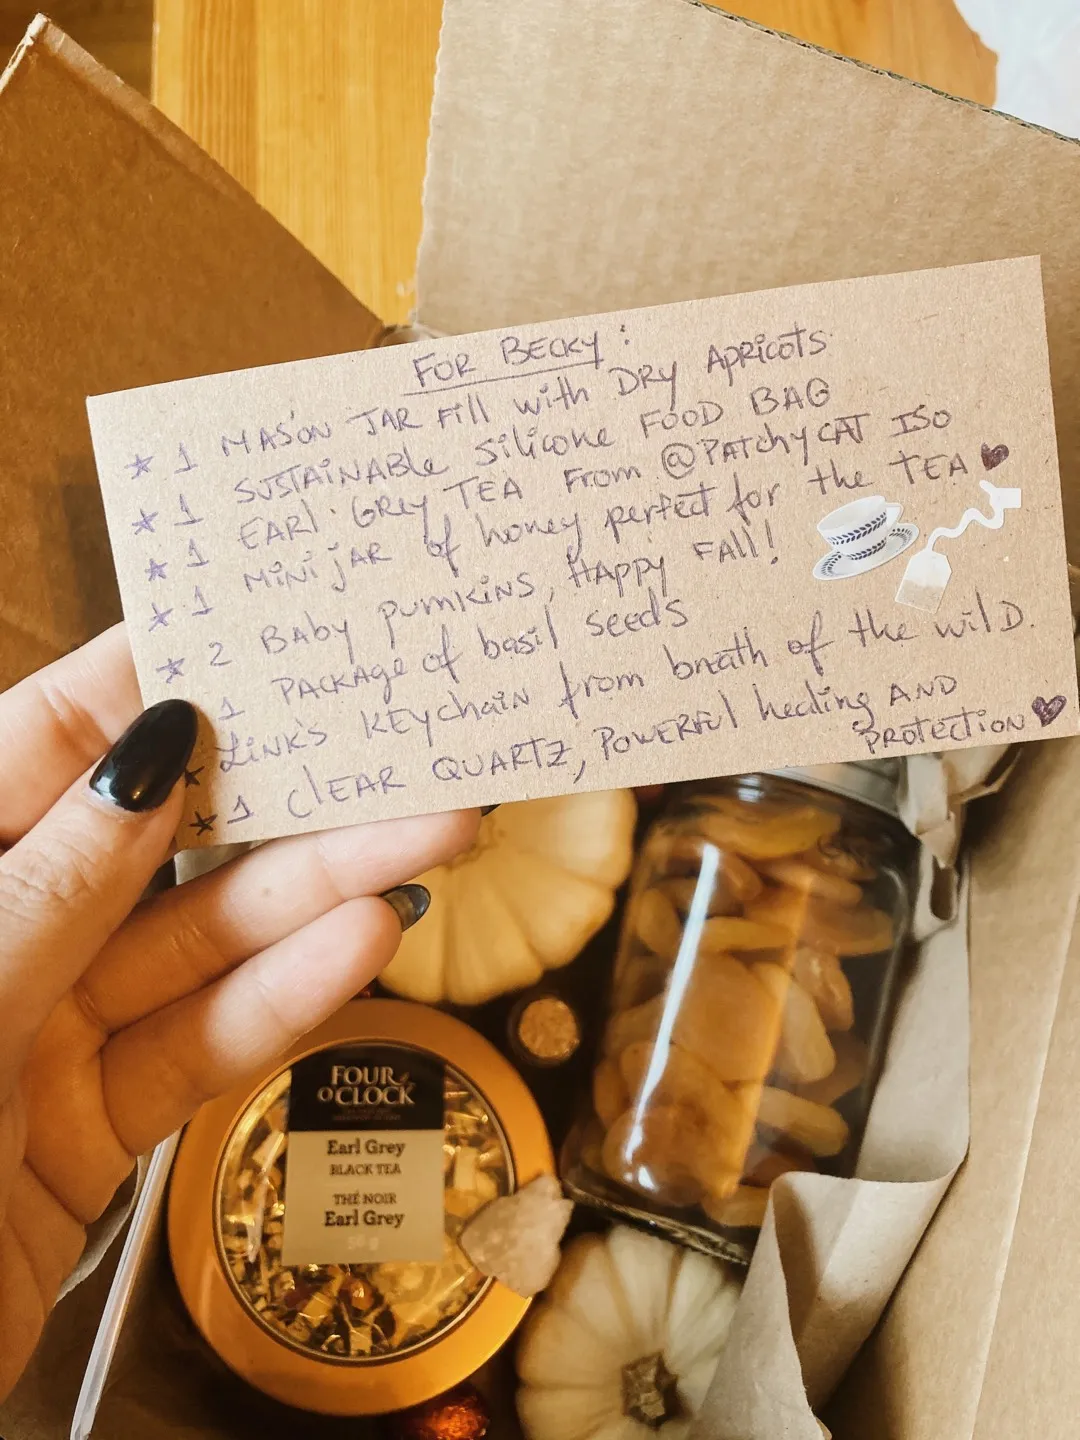 FOR BECKY:
★ 1 MASON JAR Fill with DRY APRICOTS
★ 1 SUSTAINABLE Silicone FOOD BAG
★ 1 EARL GREY TEA From @PATCHYCAT ISO
★ 1 MINI JAR of honey perfect for the TEA ♥
★ 2 BABY PUMKINS, HAPPY FAll!
1 PACKAGE of basil seeds
★ LINK'S KEYchain from breath of the wilD.
★ 1 ClEAR QUARTZ, POWERFUl healing AND
PROTECTION ♥
FOUR O'CLOCK
Earl Grey
BLACK TEA
THÉ NOIR
Earl Grey